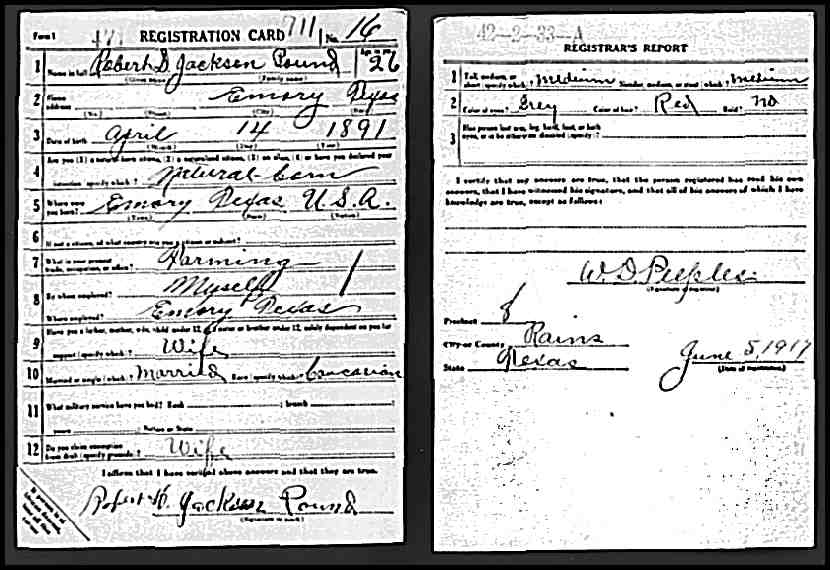 Form 1 REGISTRATION CARD 711 No. 16
1 Name in full Robert Jackson Pound Age in yrs. 26
(Given name) (Family name)
2 Home address Emory Texas
(No.) (Street) (City) (State)
3 Date of birth April 14 1891
(Month) (Day) (Year)
Are you (1) a natural-born citizen, (2) a naturalized citizen, (3) an alien, (4) or have you declared your
4 intention (specify which)? Natural-born
5 Where were you born? Emory Texas U.S.A.
(Town) (State) (Nation)
6 If not a citizen, of what country are you a citizen or subject?
7 What is your present trade, occupation, or office? Farming
8 By whom employed? Myself
Where employed? Emory Texas
Have you a father, mother, wife, child under 12, or a sister or brother under 12, solely dependent on you for
9 support (specify which)? Wife
10 Married or single (which)? Married Race (specify which)? Caucasian
11 What military service have you had? Rank ; branch ;
years ; Nation or State
12 Do you claim exemption from draft (specify grounds)? Wife
I affirm that I have verified above answers and that they are true.
Robert Jackson Pound
(Signature or mark)
42-3-33-A
REGISTRAR'S REPORT
1 Tall, medium, or short (specify which)? Medium Slender, medium, or stout (which)? Medium
2 Color of eyes? Grey Color of hair? Red Bald? no
3 Has person lost arm, leg, hand, foot, or both eyes, or is he otherwise disabled (specify)?
I certify that my answers are true, that the person registered has read his own
answers, that I have witnessed his signature, and that all of his answers of which I have
knowledge are true, except as follows:
W.D. Peeples
(Signature of registrar)
Precinct 8
City or County Rains
State Texas
June 5, 1917
(Date of registration)